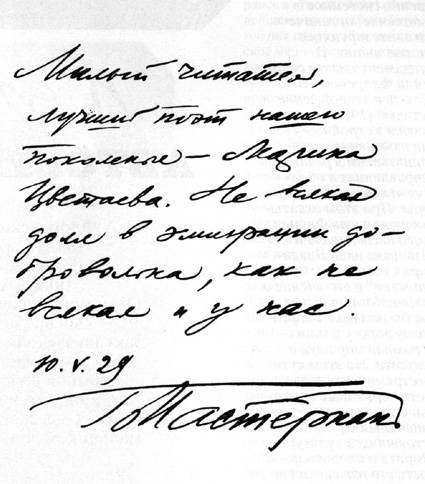 Милый читатель,
лучший поэт нашего
поколенья – Марина
Цветаева. Не всякая
доля в эмиграции до-
бровольна, как не
всякая и у нас.
10.V.29
БПастернак